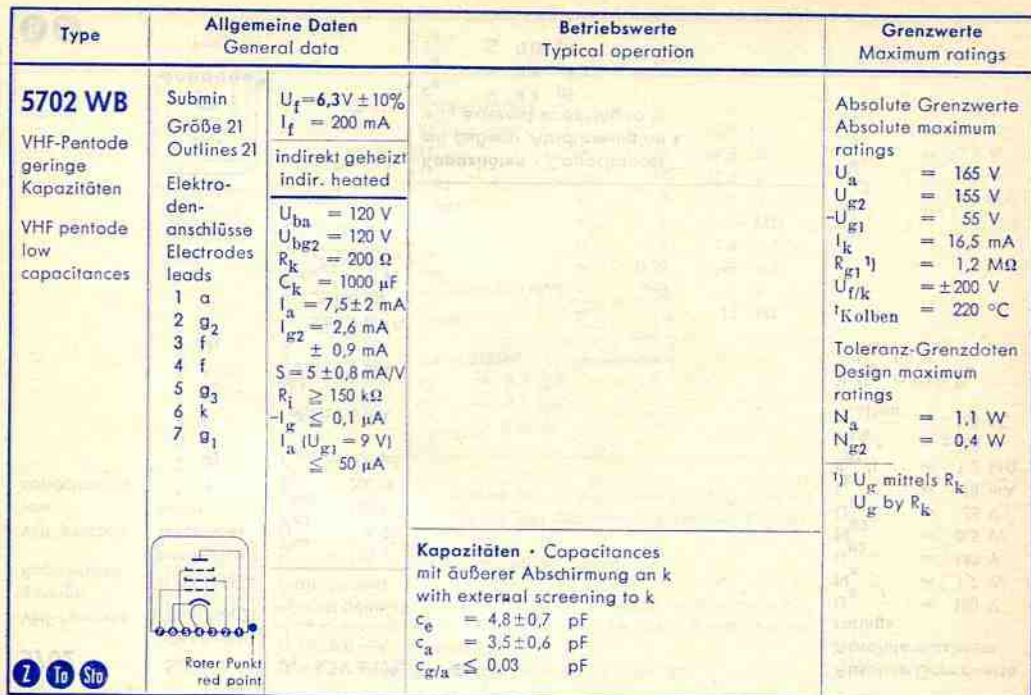 Type
Allgemeine Daten
General data
Betriebswerte
Typical operation
Grenzwerte
Maximum ratings
5702 WB
VHF-Pentode
geringe
Kapazitäten
VHF pentode
low
capacitances
Submin
Größe 21
Outlines 21
Elektro-
den-
anschlüsse
Electrodes
leads
1 a
2 g2
3 f
4 f
5 g3
6 k
7 g1
Roter Punkt
red point
Uf=6,3V ±10%
If = 200 mA
indirekt geheizt
indir. heated
Uba = 120 V
Ubg2 = 120 V
Rk = 200 Ω
Ck = 1000 µF
Ia = 7,5±2 mA
Ig2 = 2,6 mA
± 0,9 mA
S=5 ±0,8mA/V
Ri ≧ 150 kΩ
-Ig ≦ 0,1 µA
Ia (Ug1 = 9 V)
≦ 50 µA
Kapazitäten · Capacitances
mit äußerer Abschirmung an k
with external screening to k
ce = 4,8±0,7 pF
ca = 3,5±0,6 pF
cg/a ≦ 0,03 pF
Absolute Grenzwerte
Absolute maximum
ratings
Ua = 165 V
Ug2 = 155 V
-Ug1 = 55 V
Ik = 16,5 mA
Rg1 1) = 1,2 MΩ
Uf/k = ±200 V
tKolben = 220 °C
Toleranz-Grenzdaten
Design maximum
ratings
Na = 1,1 W
Ng2 = 0,4 W
1) Ug mittels Rk
Ug by Rk
Z To Sto